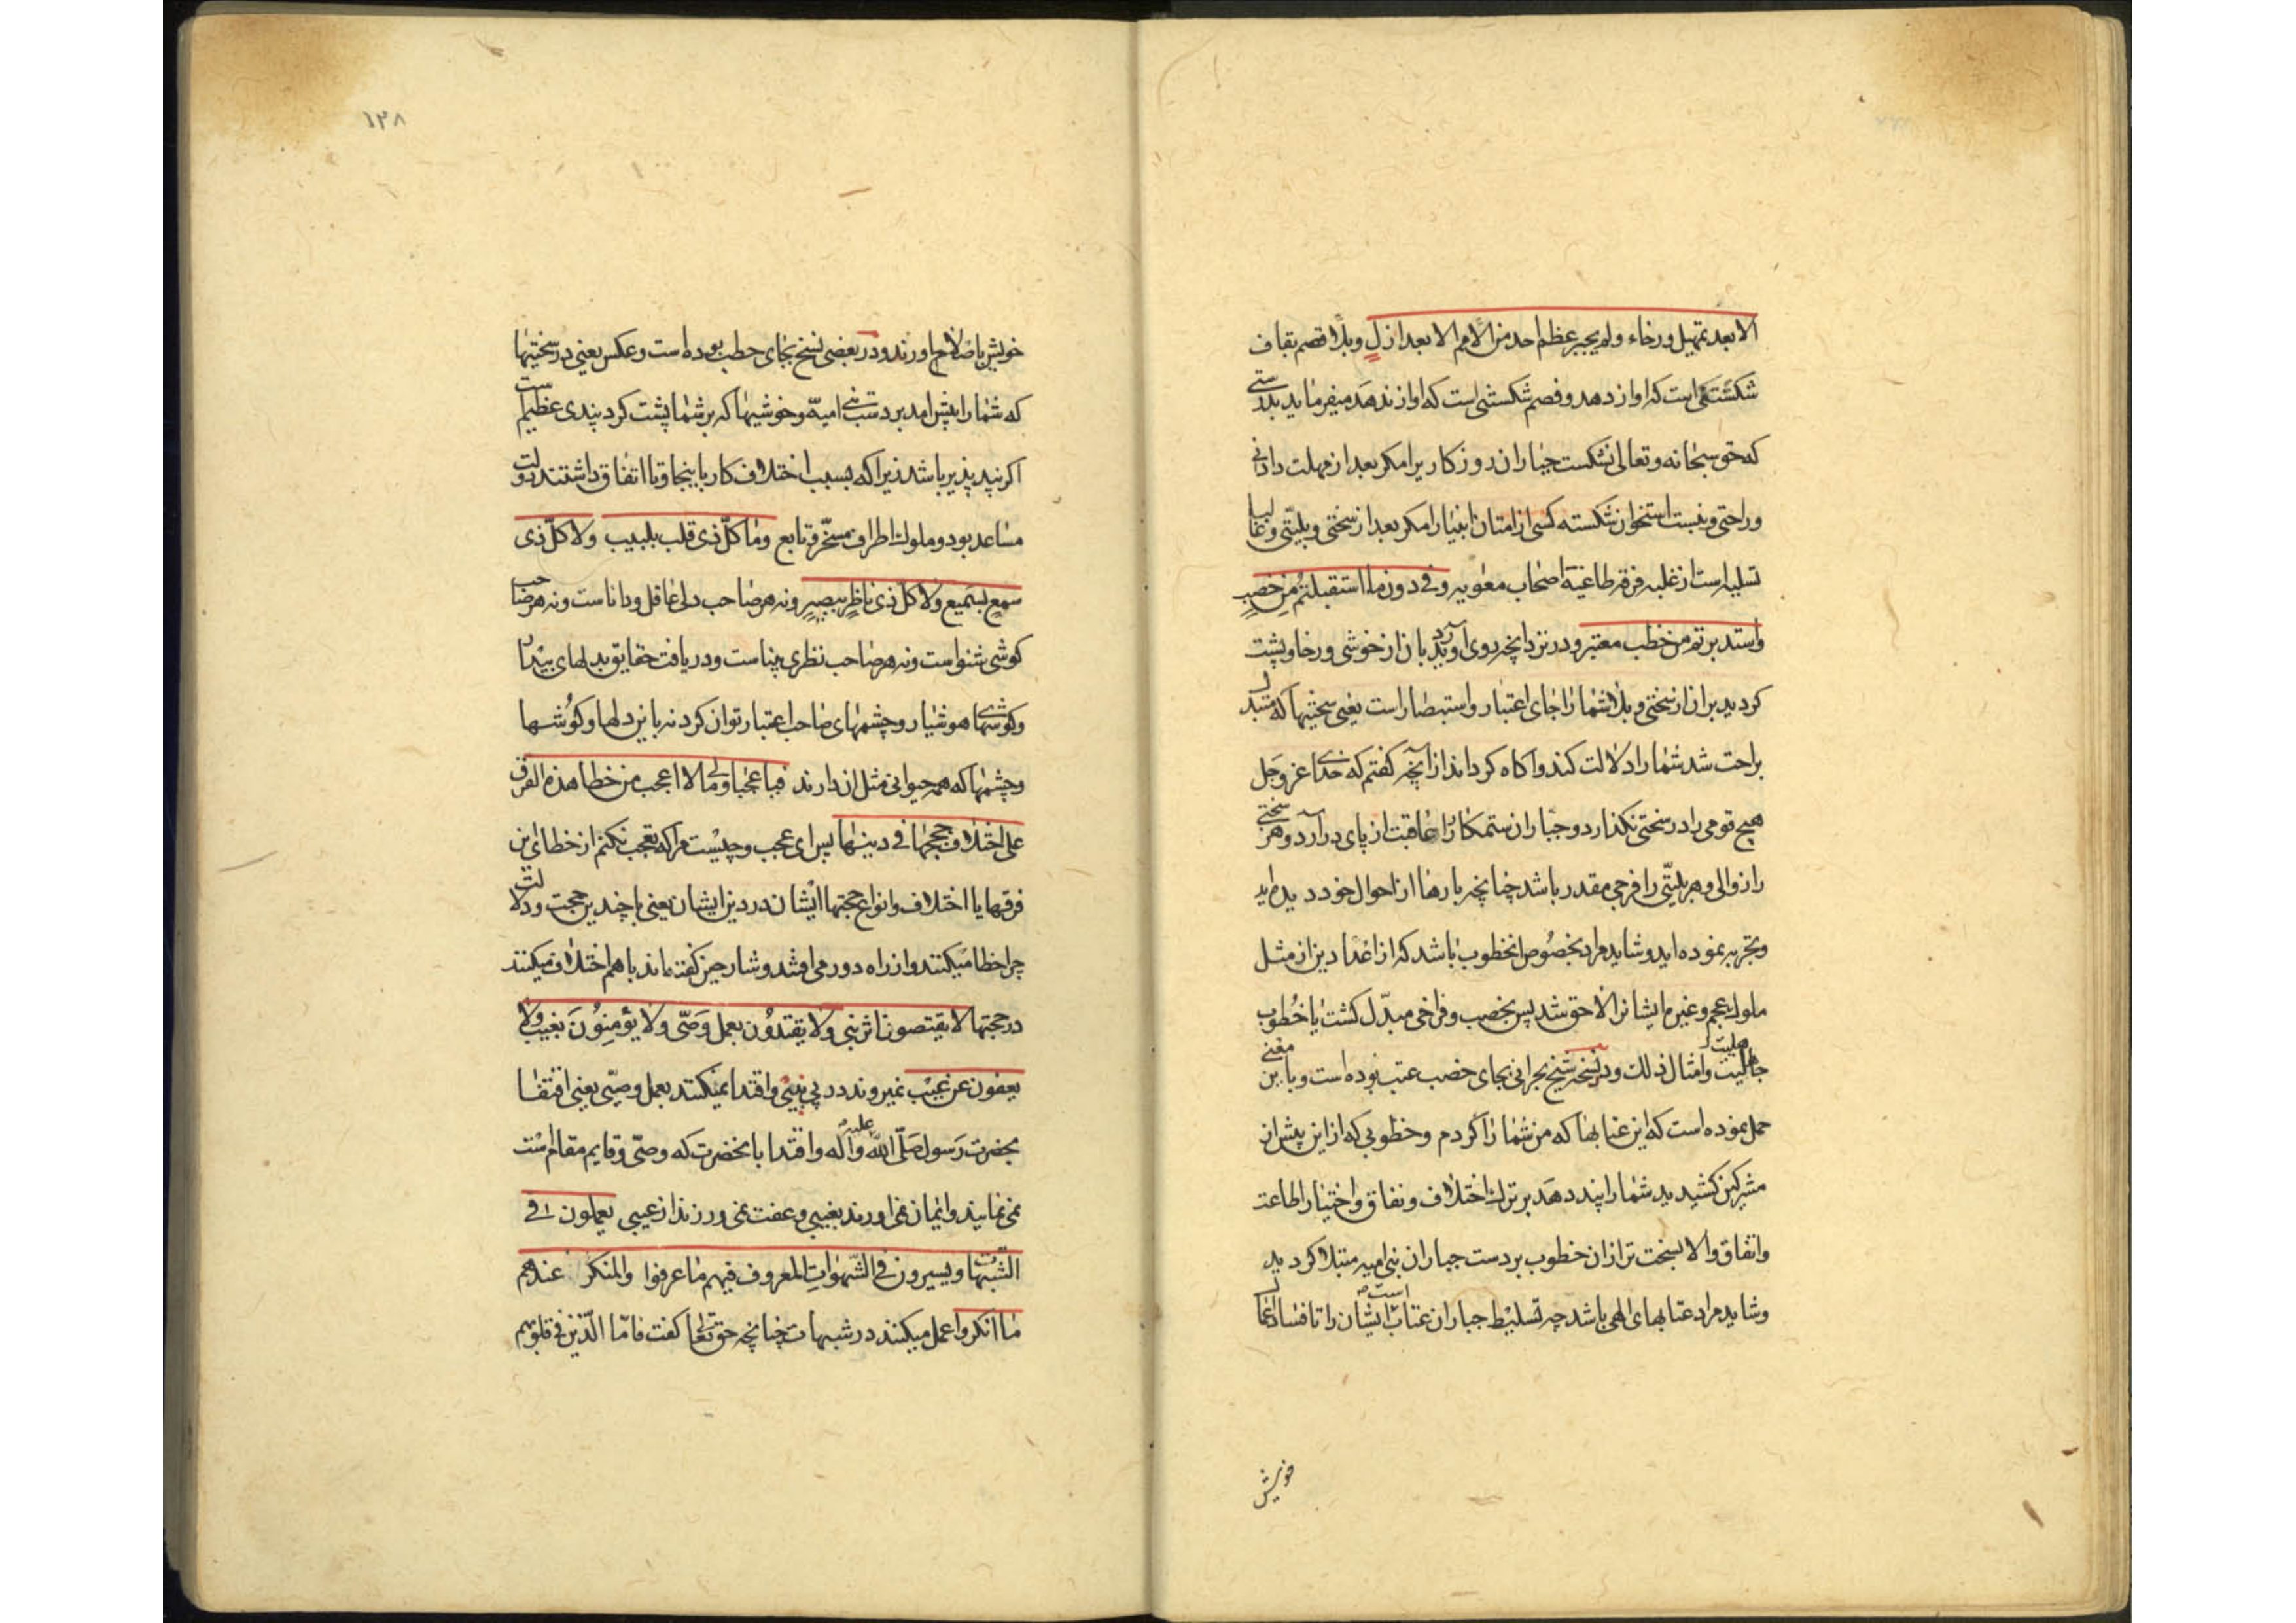 الا بعد تمهیل و رخاء و لم یجبر عظم احد من الامم الا بعد ازل و بلاء قصم بقاف
شکستکی است که اواز دهد و فصم شکستنی است که اواز ندهد میفرماید بدرستی
که حق سبحانه و تعالی نشکست جباران روزکار را مکر بعد از مهلت دادنی
و راحتی و نبست استخوان شکسته کسی از امتان انبیا را مکر بعد از سختی و بلیتی و غالبا
تسلیه است از غلبه فرقه طاغیه اصحاب معویه و فی دون ما استقبلتم من خصب
و استدبرتم من خطب معتبر و در نزد انچه روی اوردید بان از خوشی و رخا و پشت
کردید بران از سختی و بلا شما را جای اعتبار و استبصار است یعنی سختیها که متبدل
براحت شد شما را دلالت کند و اکاه کرداند از آنچه کفتم که خدای عز و جل
هیچ قومی را در سختی نکذارد و جباران ستمکار را عاقبت از پای درآرد و هر سختی
را زوالی و هر بلیتی را فرجی مقدر باشد چنانچه بارها از احوال خود دیده اید
و تجربه نموده اید و شاید مراد بخصوص انخطوب باشد که از اعدا دین از مثل
ملوک عجم و غیرهم ایشانرا لاحق شد پس بخصب و فراخی مبدّل کشت یا خطوب
جاهلیت و امثال ذلک و در نسخه شیخ بحرانی بجای خصب عتب بوده است و باین معنی
حمل نموده است که این عتابها که من شما را کردم و خطوبی که از این پیش از
مشرکین کشیدید شما را پند دهد بر ترک اختلاف و نفاق و اختیار اطاعت
و اتفاق و الا بسخت تر از ان خطوب بر دست جباران بنی امیه مبتلا کردید
و شاید مراد عتابهای الهی باشد چه تسلیط جباران عتاب ایشان است تا فساد اعمال
خویش
١٢٨
خویش باصلاح اورند و در بعضی نسخ بجای خطب بوده است و عکس یعنی در سختیها
که شما را پیش امد بر دست بنی امیه و خوشیها که بر شما پشت کرد پندی عظیم است
اکر پند پذیر باشد زیرا که بسبب اختلاف کار باینجا و تا اتفاق داشتند دولت
مساعد بود و ملوک اطراف مسخّر و تابع و ما کلّ ذی قلب بلبیب و لا کلّ ذی
سمع بسمیع و لا کلّ ذی ناظر ببصیر و نه هر صاحب دلی عاقل و داناست و نه هر صاحب
کوشی شنواست و نه هر صاحب نظری بیناست و دریافت حقایق بدلهای بیدار
و کوشهای هوشیار و چشمهای صاحب اعتبار توان کرد نه باین دلها و کوشها
و چشمها که همه حیوانی مثل ان دارند فیا عجبا و مالی لا اعجب من خطا هذه الفرق
علی اختلاف حججها فی دینها پس ای عجب و چیست مرا که تعجب نکنم از خطای این
فرقها با اختلاف و انواع حجتها ایشان در دین ایشان یعنی با چندین حجت و دلالت
چرا خطا میکنند و از راه دور می افتند و شارحین کفته اند با هم اختلاف میکنند
در حجتها لا یقتصون اثر نبی و لا یقتدون بعمل وصّی و لا یؤمنون بغیب و لا
یعفون عن عیب نمیروند در پی نبیّی و اقتدا نمیکنند بعمل وصیّی یعنی اقتفا
بحضرت رسول صلّی اللّه علیه و آله و اقتدا بانحضرت که وصّی و قایم مقام است
نمی نمایند و ایمان نمی اورند بغیبی و عفت نمی ورزند از عیبی یعملون فی
الشّبهات و یسیرون فی الشّهوات المعروف فیهم ما عرفوا و المنکر عندهم
ما انکروا عمل میکنند در شبهات چنانچه حق تعالی کفت فامّا الّذین فی قلوبهم